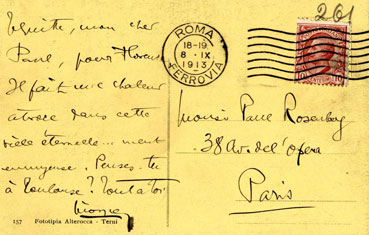 261
ROMA
18-19
8 · IX
1913
FERROVIA
mon cher
Paul, pour Florence
Il fait une chaleur
atroce dans cette
ville éternelle... ment
ennuyeuse. Penses-tu
à Toulouse? Tout à toi
Monsieur Paul Rosenberg
38 Av. de l'Opera
Paris
157 Fototipia Alterocca - Terni